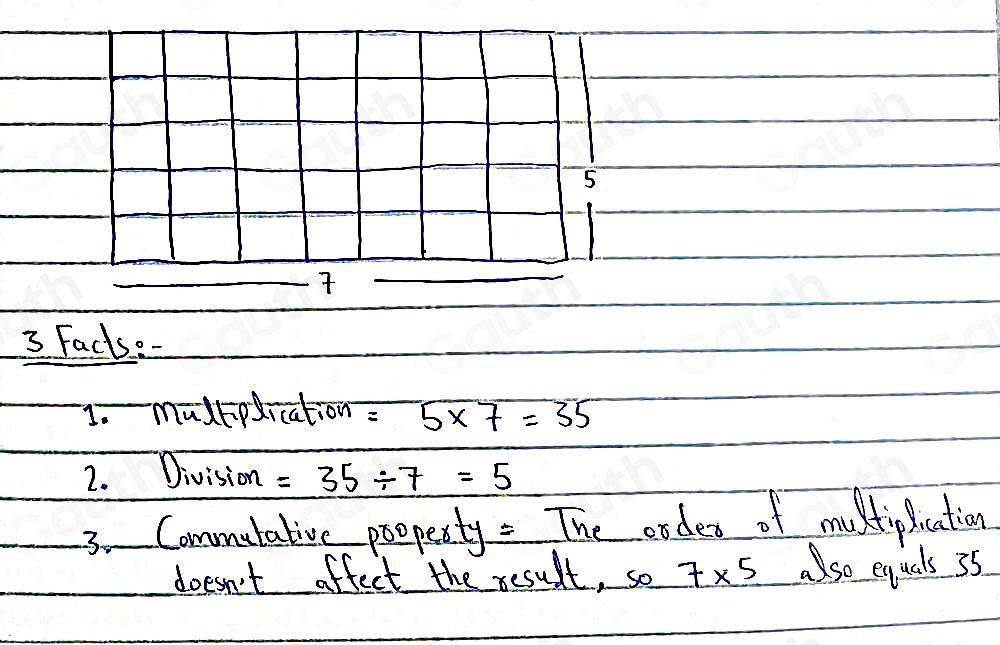 5
7
3 Facts:-
1. Multiplication = 5 × 7 = 35
2. Division = 35 ÷ 7 = 5
3. Commutative property = The order of multiplication
doesn't affect the result, so 7 × 5 also equals 35